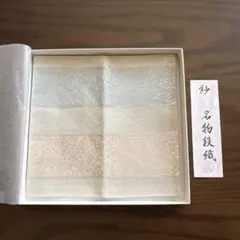 紗
名物段織